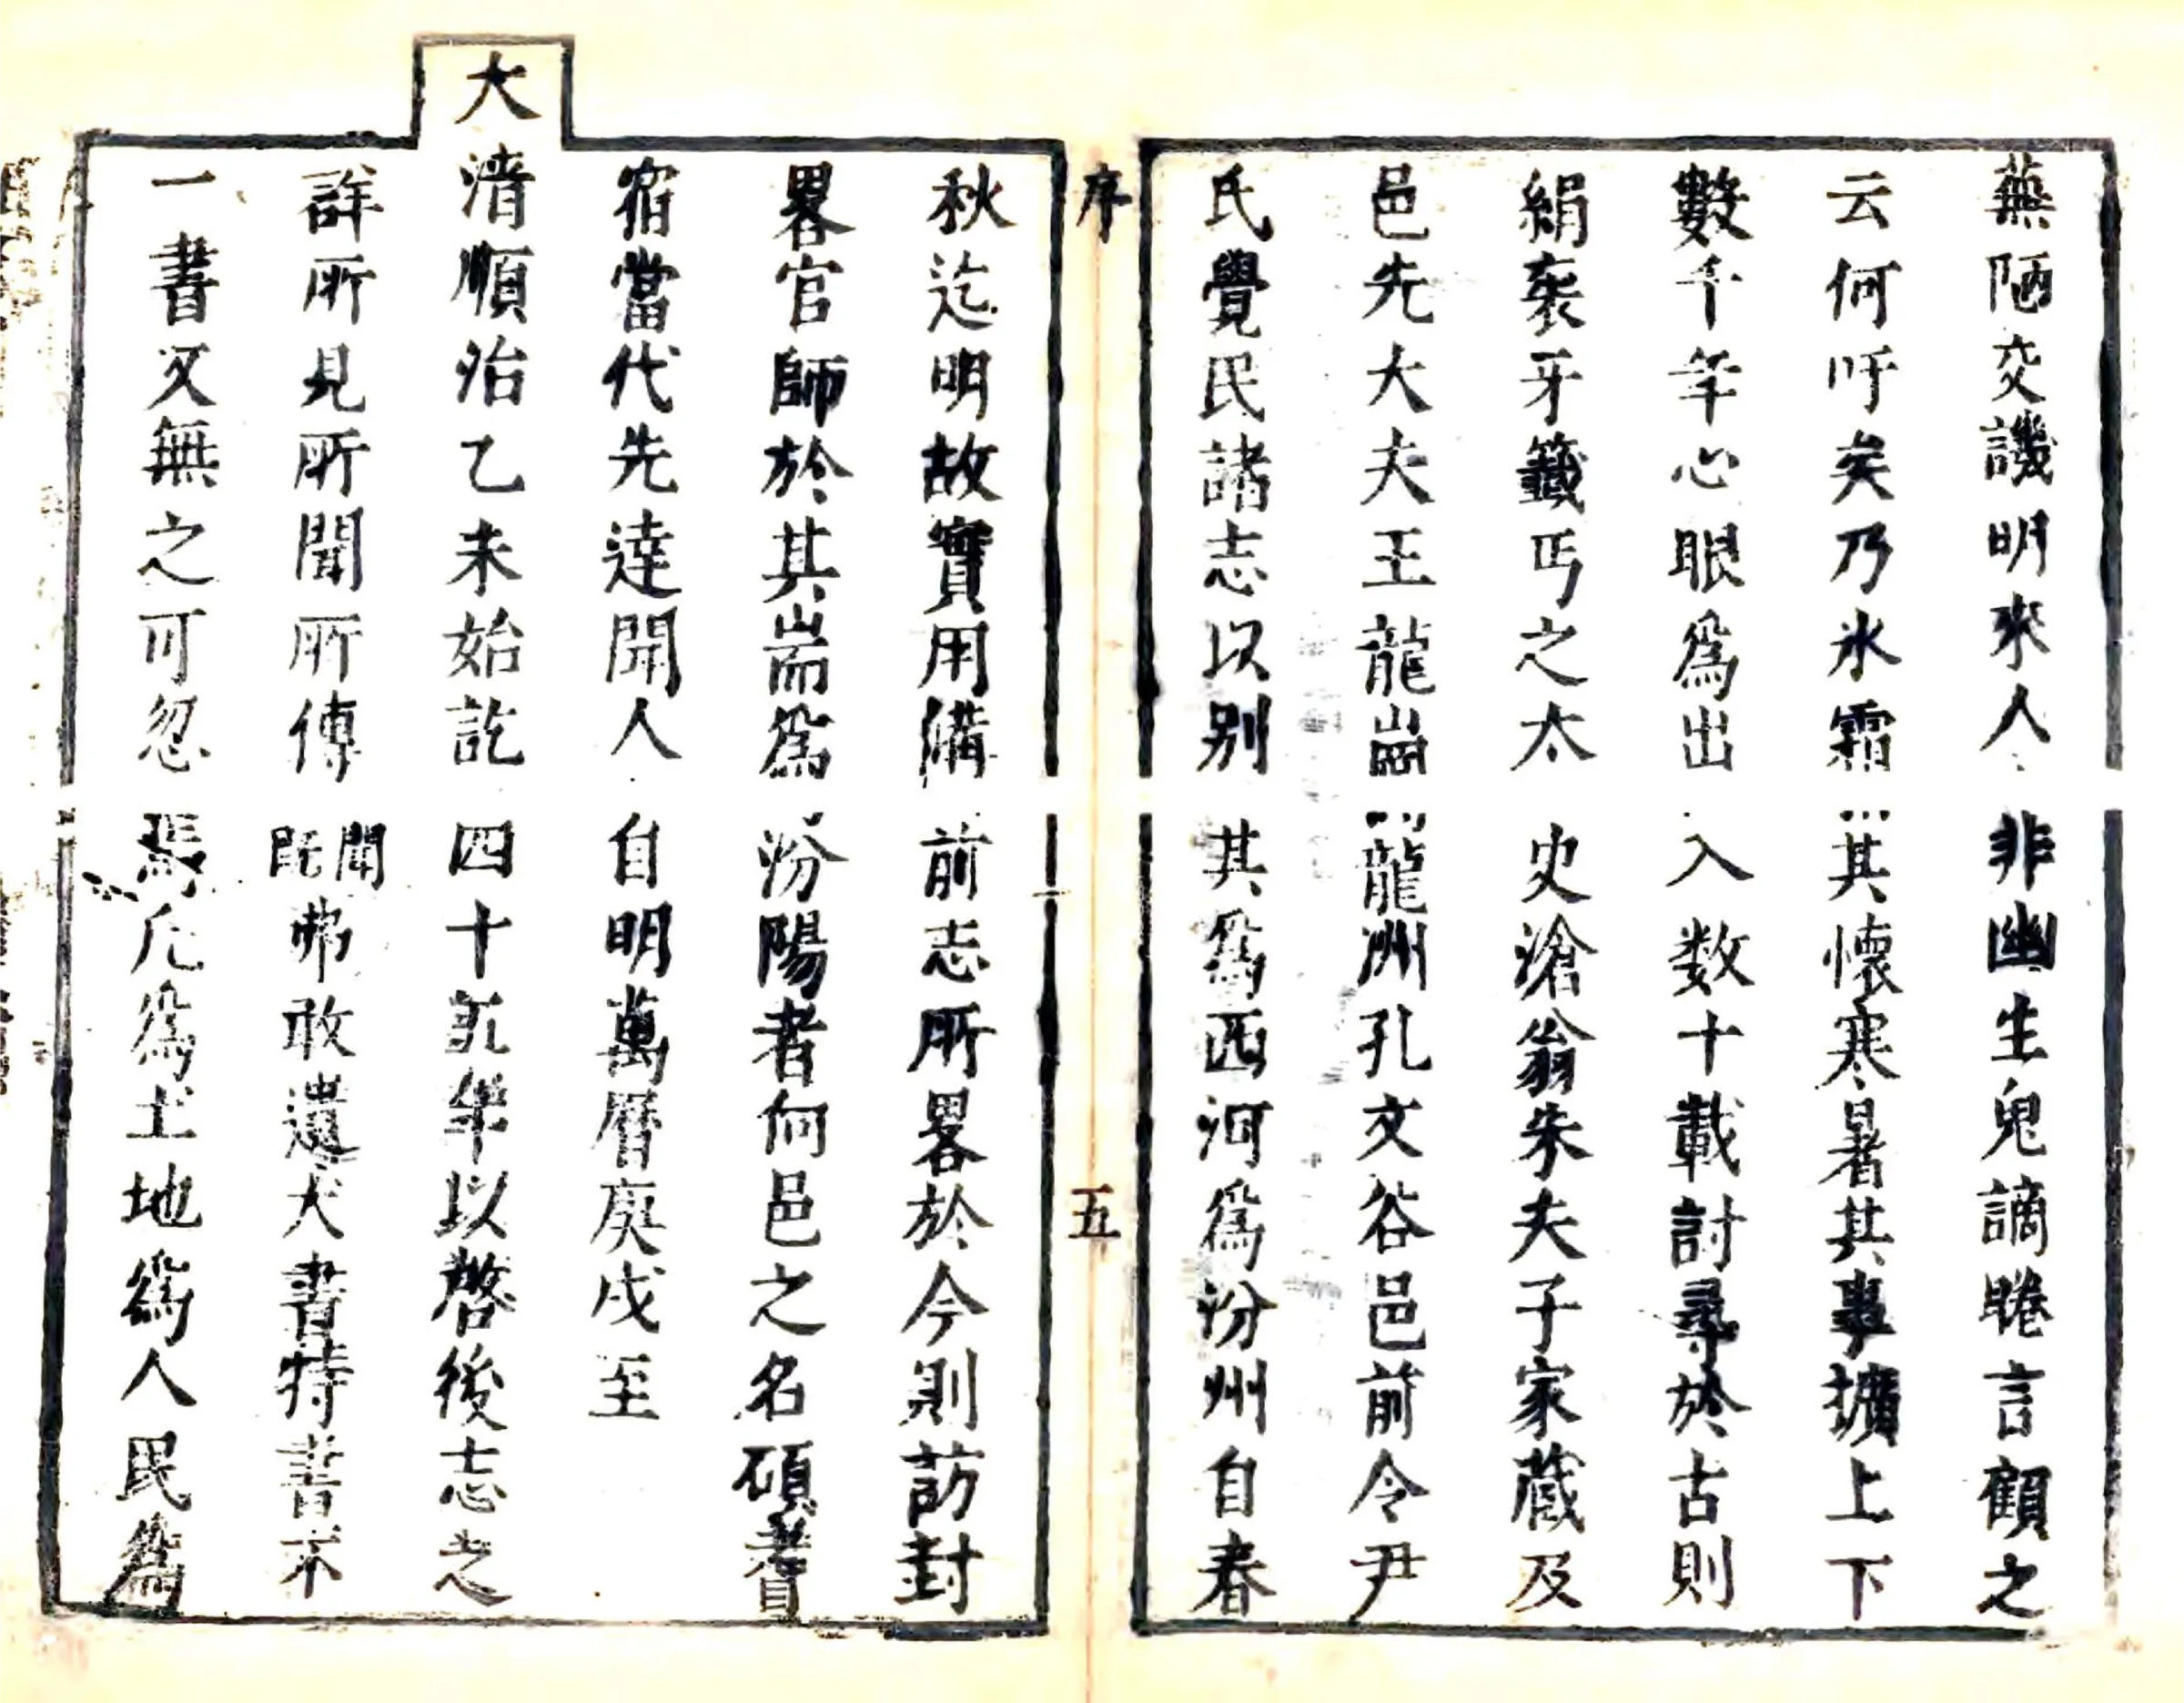 蕪陋交譏明來人非幽生鬼謫睠言顧之
云何吁矣乃氷霜其懷寒暑其事擴上下
數千年心眼爲出入数十載討尋於古則
絹袠牙籤丐之太史滄翁朱夫子家蔵及
邑先大夫王龍崗龍洲孔文谷邑前令尹
氏覺民諸志以别其爲西河爲汾州自春
序
五
秋迄明故實用備前志所畧於今則訪封
畧官師於其耑爲汾陽者何邑之名碩耆
宿當代先達聞人自明萬曆庚戌至
大清順治乙未始訖四十年以啓後志之
詳所見所聞所傳聞旣弗敢遺大書特書不
一書又無之可忽焉凢爲土地爲人民爲